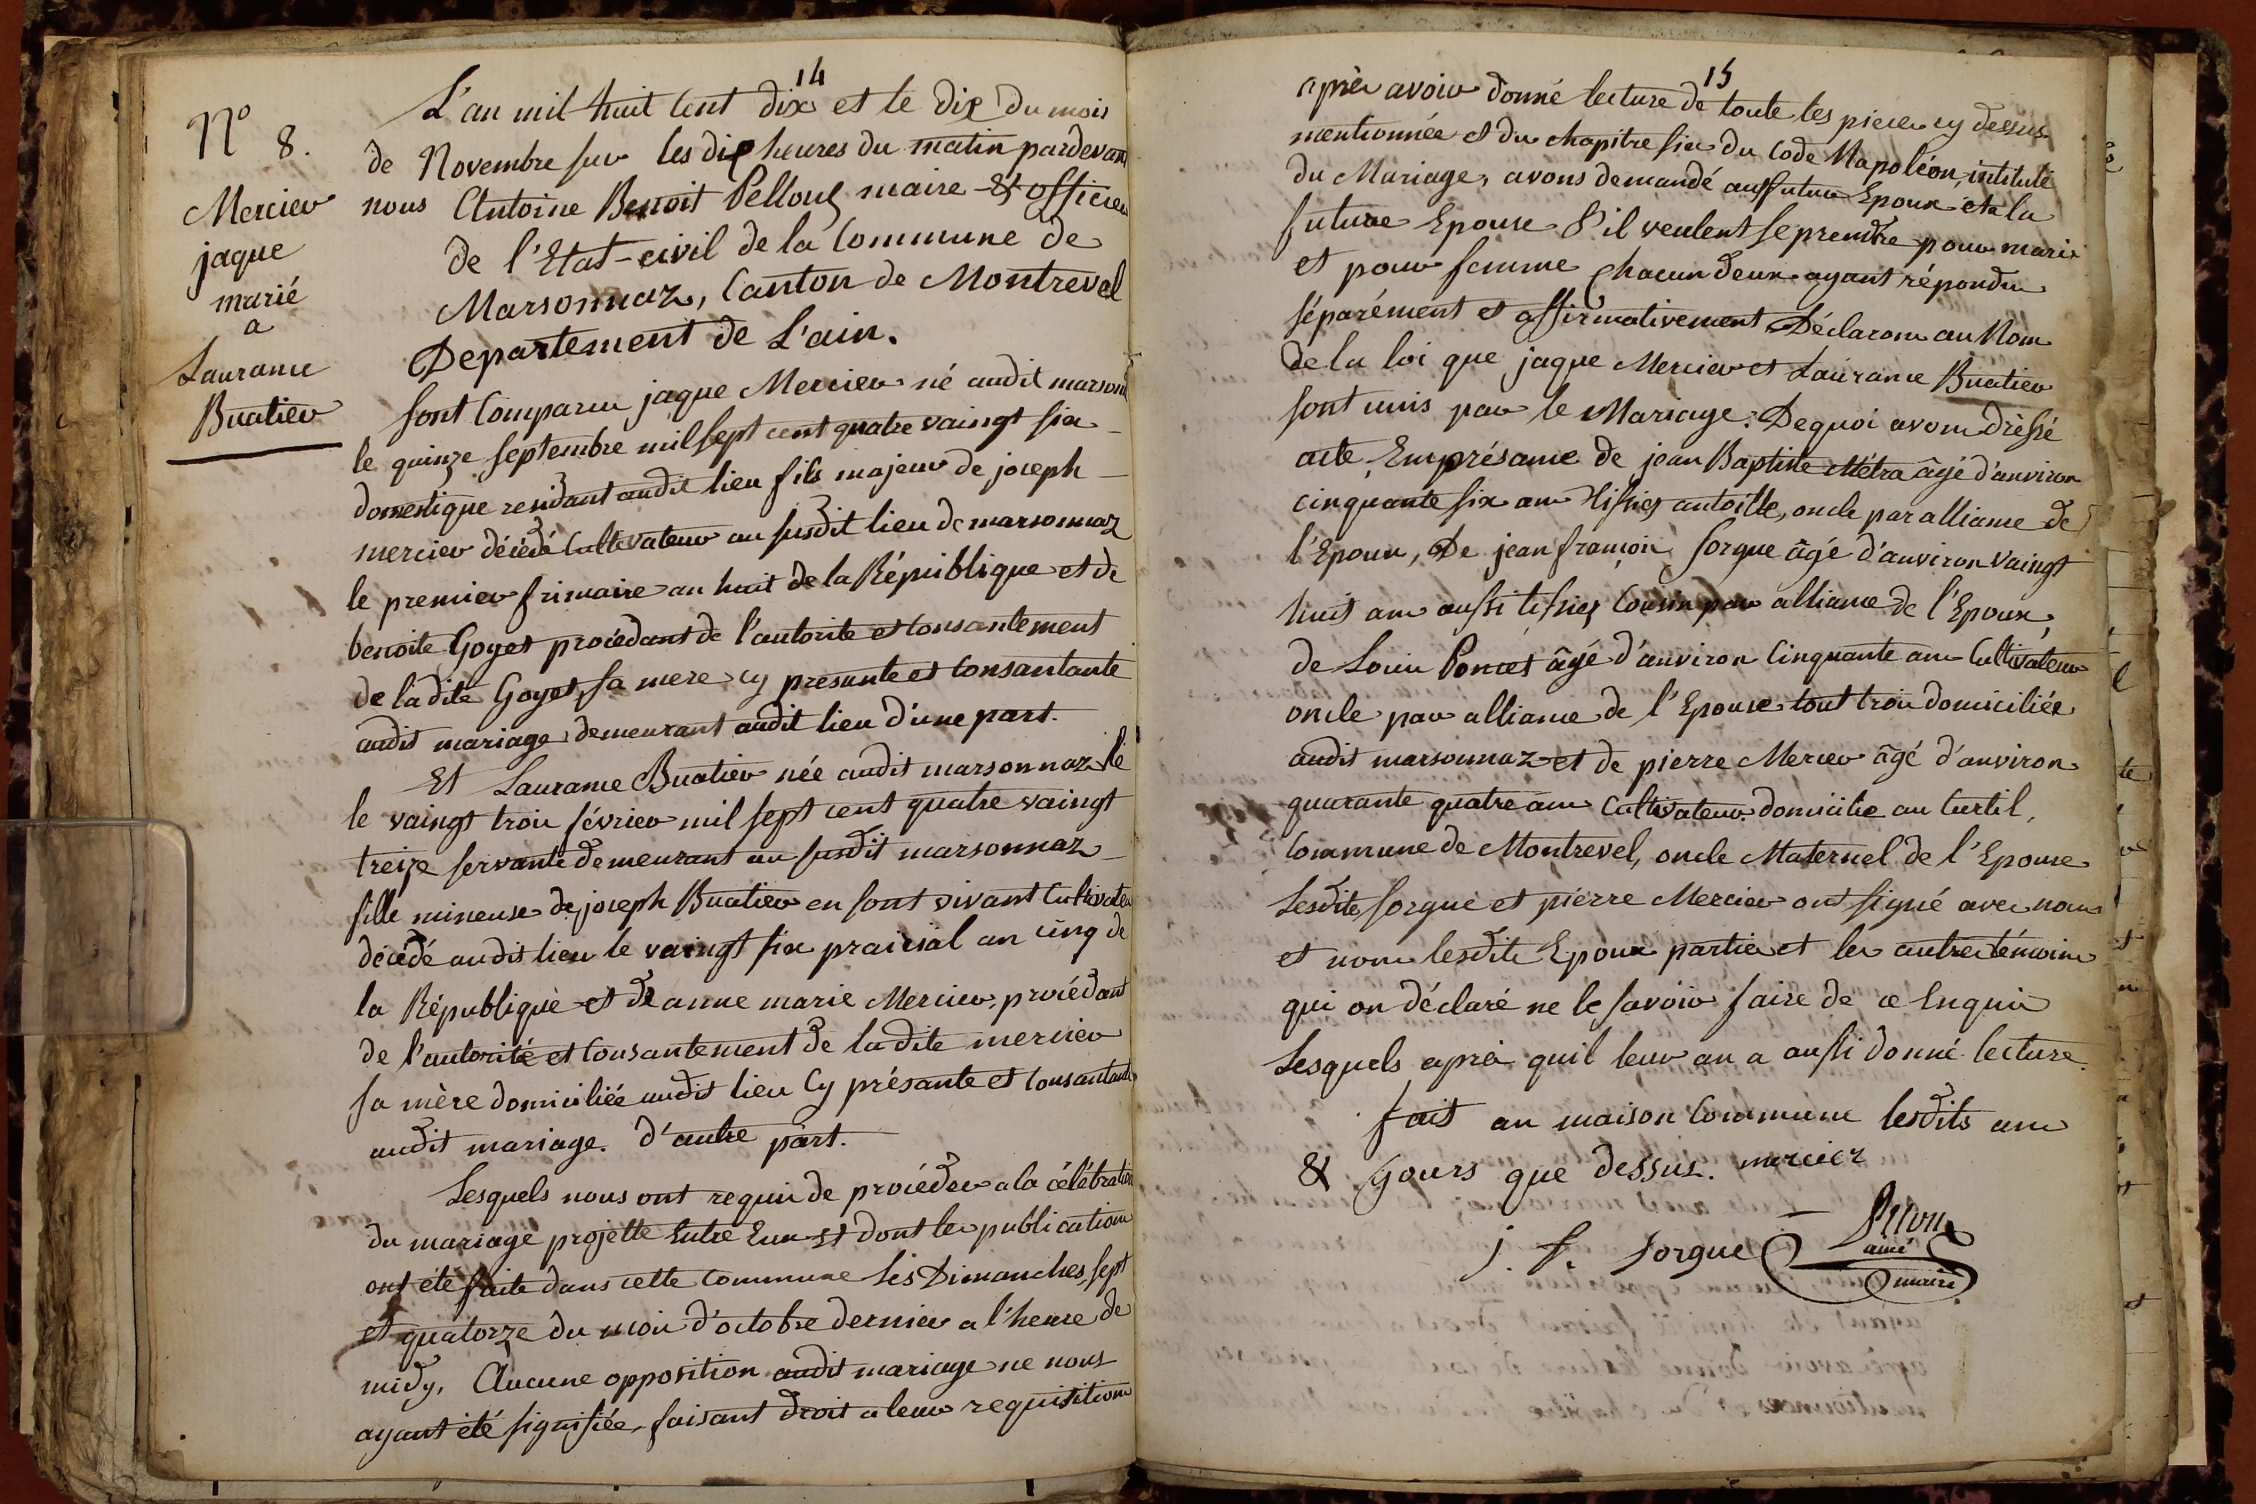 14
N° 8.
Mercier
jaque
marié
a
Laurance
Buatier
L'an mil huit cent dix et le dix du mois
de Novembre sur les dix heures du matin pardevan
nous Antoine Benoit Pelloux maire & officier
de l'Etat-civil de la Commune de
Marsonnaz, Canton de Montrevel
Departement de L'ain.
sont Comparus jaque Mercier né audit marsonn
le quinze septembre mil sept cent quatre vaingt six
domestique residant audit lieu fils majeur de joseph
mercier décédé Cultevateur au susdit lieu de marsonnaz
le premier frimaire an huit de la République et de
benoite Goyet procédant de l'autorite et Consantement
de ladite Goyet, sa mere cy presante et Consantante
audit mariage demeurant audit lieu d'une part.
Et Laurance Buatier née audit marsonnaz lé
le vaingt trois février mil sept cent quatre vaingt
treize servante demeurant au susdit marsonnaz
fille mineuse de joseph Buatier en sont vivant Cultivateu
décédé audit lieu lé vaingt six prairial an cinq de
la République et de anne marie Mercier, procédant
de l'autorité et Consantement de ladite mercier
sa mère domiciliée audit lieu Cy présante et Consantante
audit mariage. d'autre part.
Lesquels nous ont requis de procéder a la célébration
du mariage projetté Entre Eux et dont les publications
ont été faite dans cette Commune Les Dimanches, sept
et quatorze du mois d'octobre dernier a l'heure de
midy, Aucune opposition audit mariage ne nous
ayant été signifiée, faisant droit a leur requisitions
15
après avoir donné lecture de toute les pieces cy dessus
mentionnée et du chapitre six du Code Napoléon, intitulé
du Mariage, avons demandé au futur Epoux et a la
future Epouse S'il veulent se prendre pour mari
et pour femme Chacun deux ayant répondu
séparément et affirmativement Déclarons au Nom
de la loi que jaque Mercier et Laurance Buatier
sont unis par le Mariage. De quoi avons dréssé
acte En présance de jean Baptiste Métra âgé d'anviron
cinquante six ans antoille, oncle par alliance de
l'Epoux, De jean françois Sorgue âgé d'anviron vaingt
huit ans aussi Cousin par alliance de l'Epoux,
de Louis Poncet âgé d'anviron Cinquante ans Cultivateur
oncle par alliance de l'Epouse tout trois domiciliée
audit marsonnaz et de pierre Mercier âgé d'anviron
quarante quatre ans Cultivateur domicilie au Curtil,
Commune de Montrevel, oncle Maternel de l'Epouse
Lesdits Sorgue et piérre Mercier ont signé avec nous
et non lesdits Epoux partie et les autre témoins
qui on déclaré ne le savoir faire de ce Enquis
Lesquels après quil leur an a aussi donné lecture.
fait an maison Commune lesdits ans
& Gours que dessus. mercier
j. f. Sorgue
ainé
maire